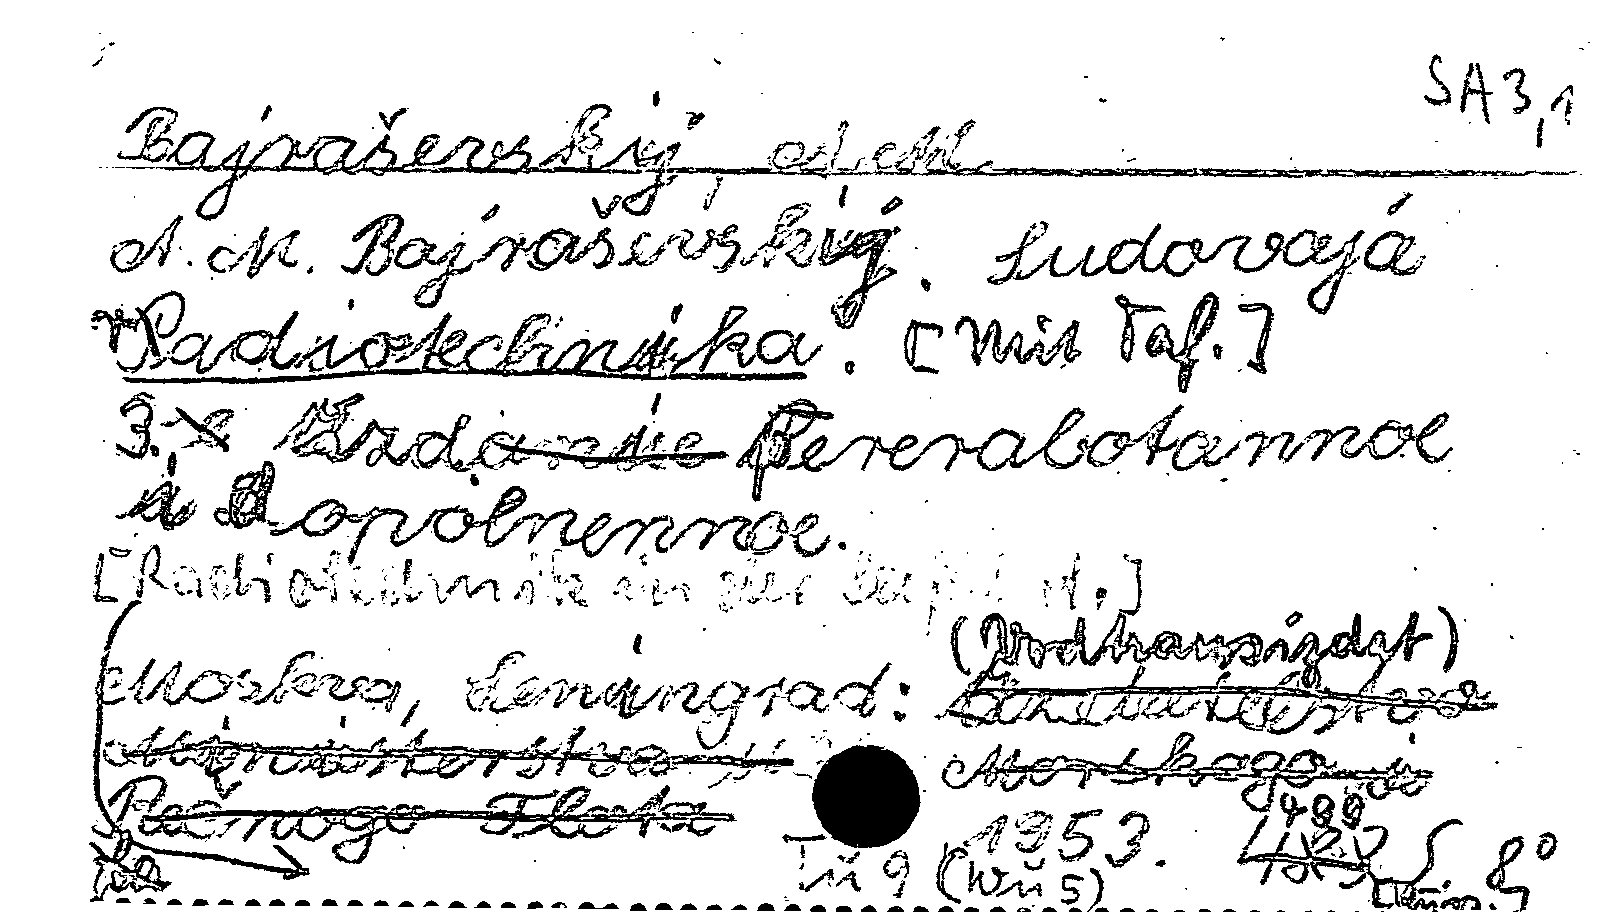 SA 3,1
Bajraševskij, A. M.
A. M. Bajraševskij. Sudovaja
Radiotechnika. [Mit Taf.]
3. Izdanie Pererabotannoe
i dopolnennoe.
[Radiotechnik in der
(Vodtransizdat)
Moskva, Leningrad:
Ministerstva Morskogo i
Rečnogo Flota
1953. S. 8°
Tü 9 (Wü 5)